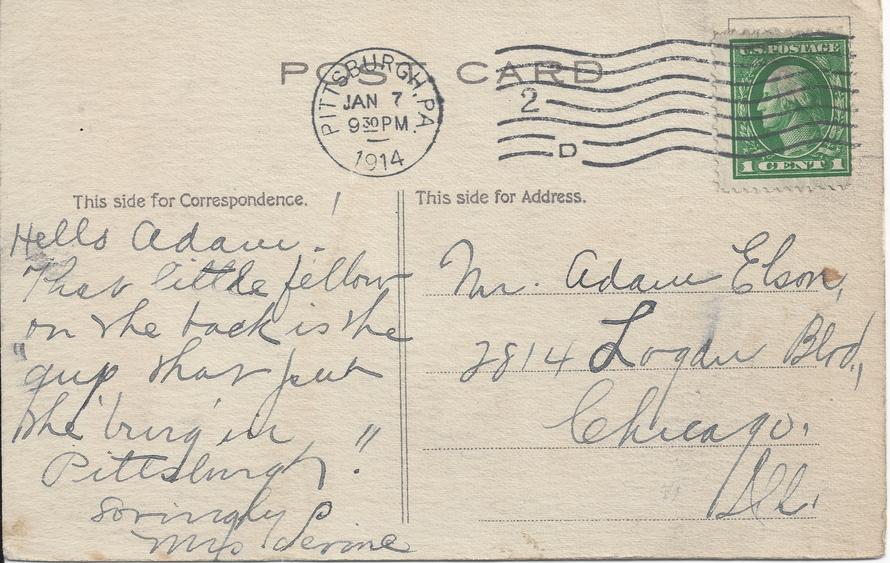 POST CARD
PITTSBURGH, PA.
JAN 7
9 30 PM
1914
2
D
U.S. POSTAGE
1 CENT 1
This side for Correspondence.
Hello Adam!
That little fellow
on the back is the
"guy that put
the 'burg' in
Pittsburgh."
Lovingly
Mrs Levine
This side for Address.
Mr. Adam Elson,
2814 Logan Blvd,
Chicago.
Ill.